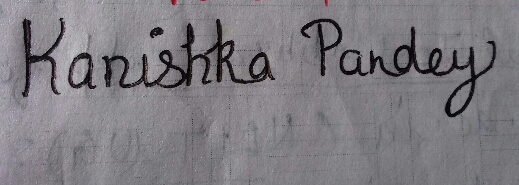 Kanishka Pandey